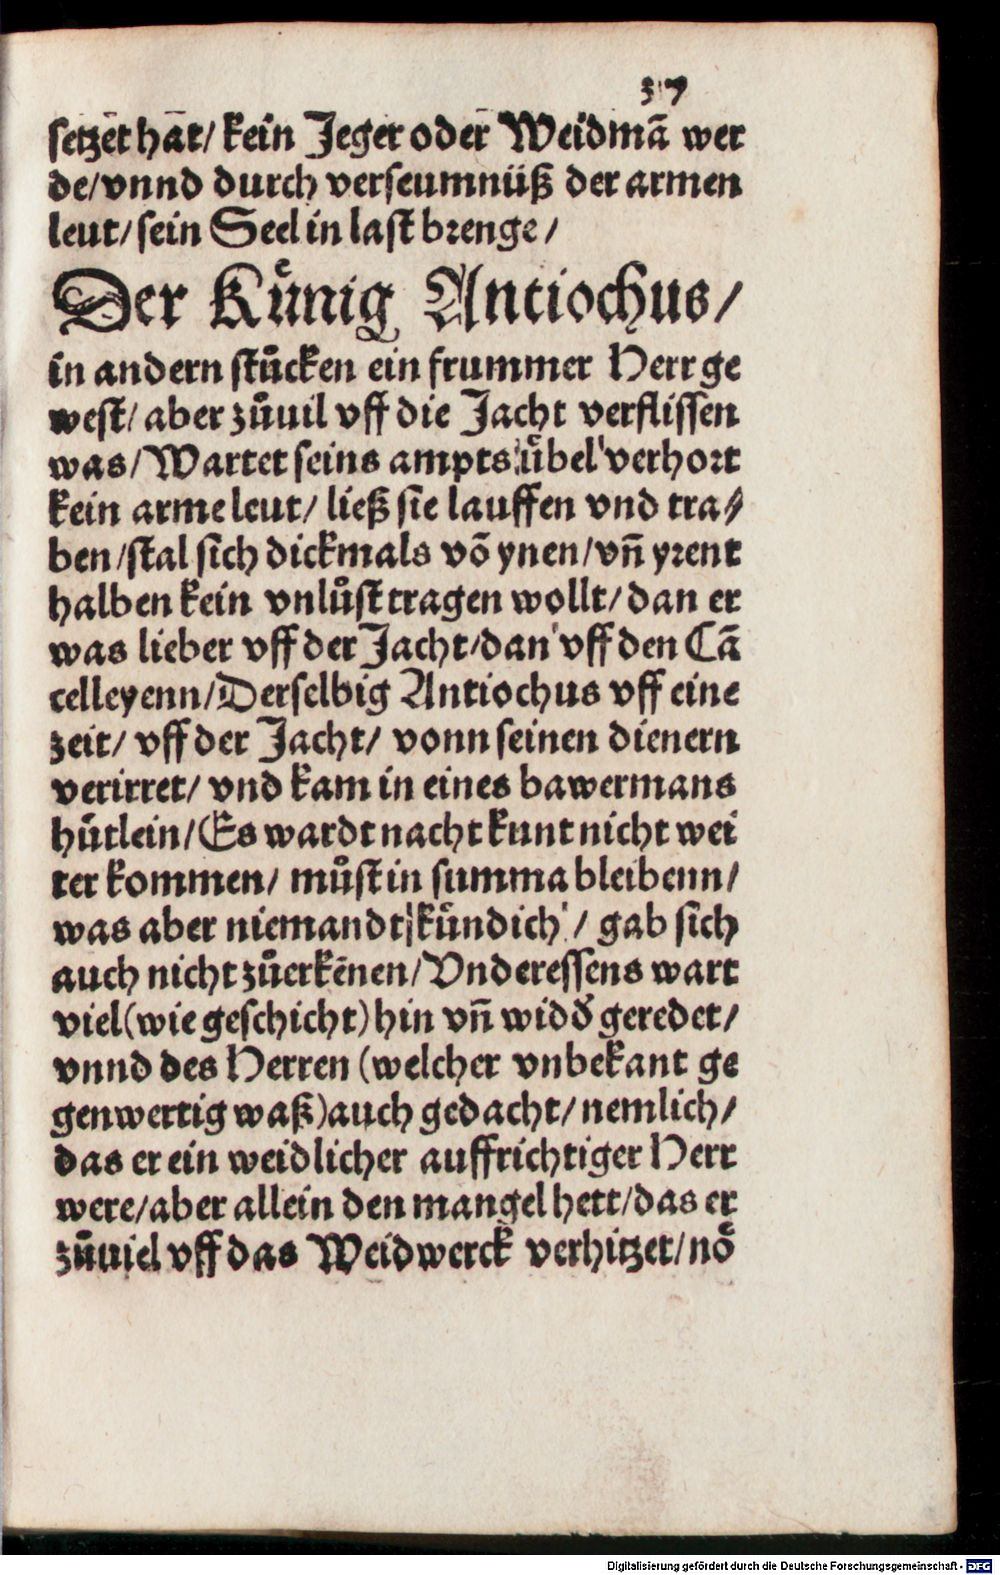 37
setzet hat/ kein Jeger oder Weidmā wer
de/vnnd durch verseumnüß der armen
leut/sein Seel in last brenge/
Der Kuͤnig Antiochus/
in andern stuͤcken ein frummer Herr ge
west/ aber zuͦuil vff die Jacht verflissen
was/Wartet seins ampts uͤbel verhort
kein arme leut/ ließ sie lauffen vnd tra⸗
ben/stal sich dickmals võ ynen/vñ yrent
halben kein vnluͦst tragen wollt/dan er
was lieber vff der Jacht/dan vff den Cā
celleyenn/Derselbig Antiochus vff eine
zeit/ vff der Jacht/ vonn seinen dienern
verirret/ vnd kam in eines bawermans
huͤtlein/Es wardt nacht kunt nicht wei
ter kommen/ muͦst in summa bleibenn/
was aber niemandt kuͤndich/ gab sich
auch nicht zuͦerkēnen/Vnderessens wart
viel(wie geschicht)hin vñ widð geredet/
vnnd des Herren (welcher vnbekant ge
genwertig waß)auch gedacht/nemlich/
das er ein weidlicher auffrichtiger Herr
were/aber allein den mangel hett/das er
zuͦuiel vff das Weidwerck verhitzet/noͤ
Digitalisierung gefördert durch die Deutsche Forschungsgemeinschaft - DFG